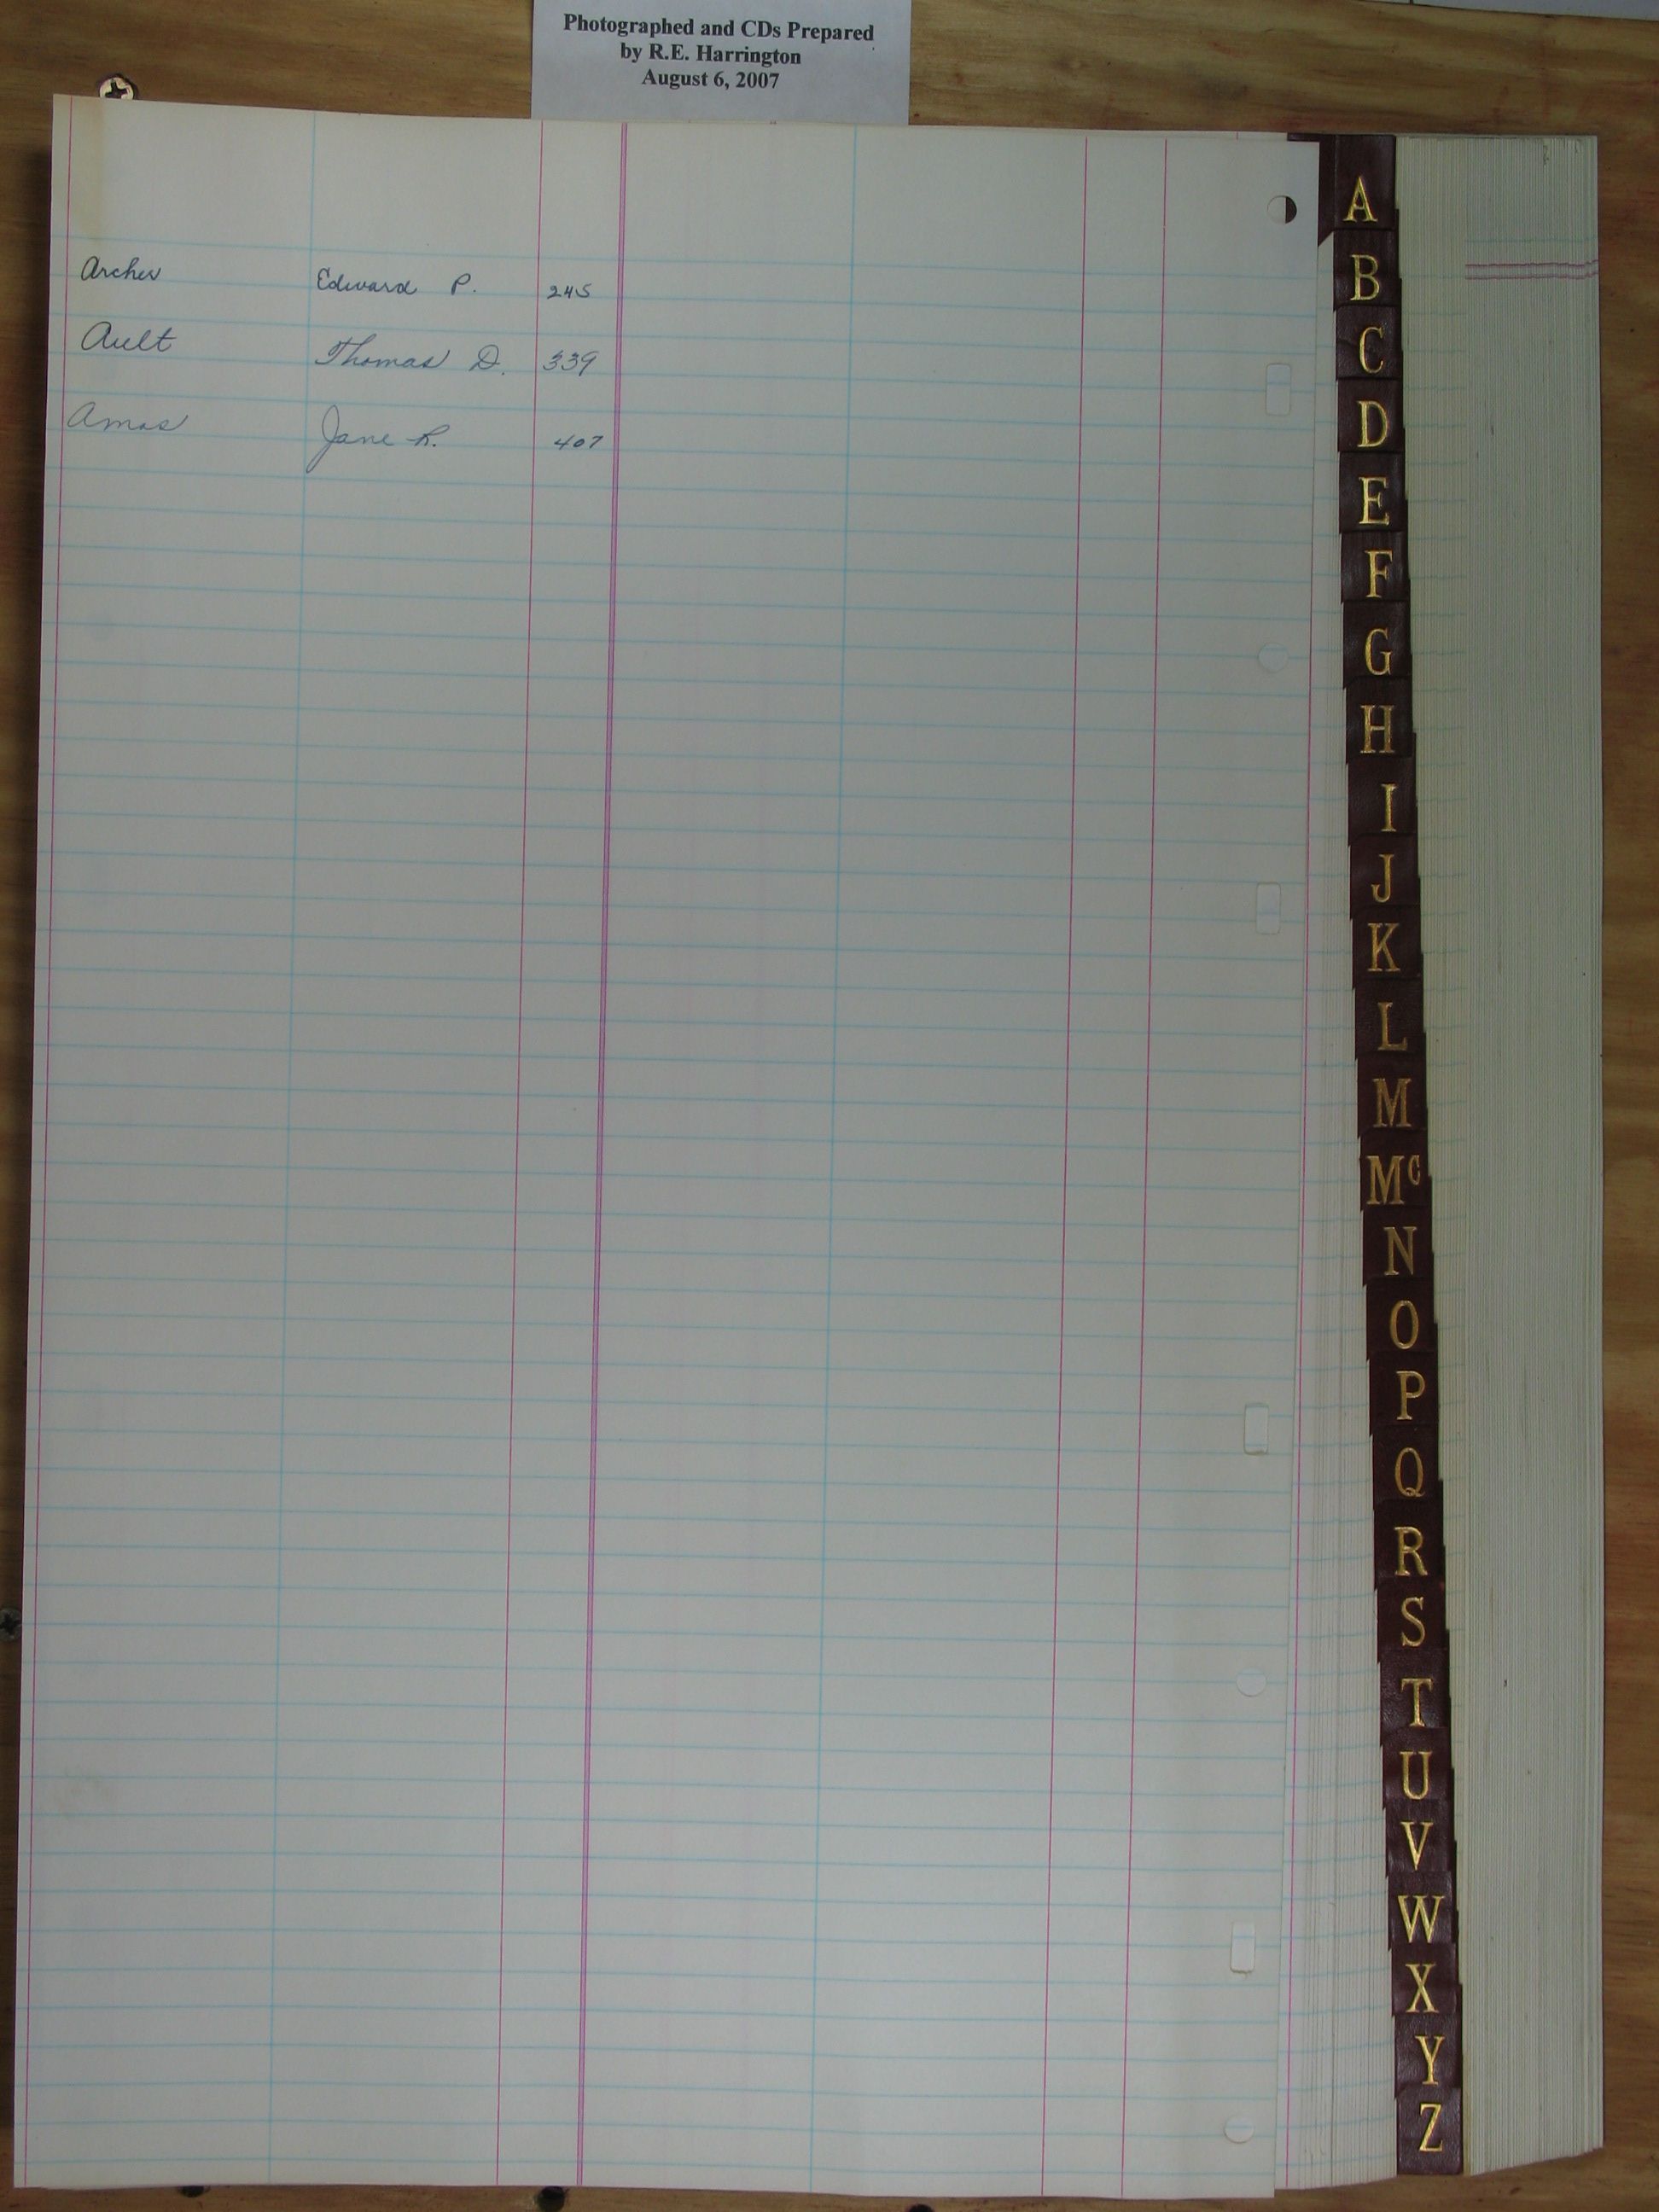 Photographed and CDs Prepared
by R.E. Harrington
August 6, 2007
Archer Edward P. 245
Ault Thomas D. 339
Amos Jane R. 407
A
B
C
D
E
F
G
H
I
J
K
L
M
Mc
N
O
P
Q
R
S
T
U
V
W
X
Y
Z